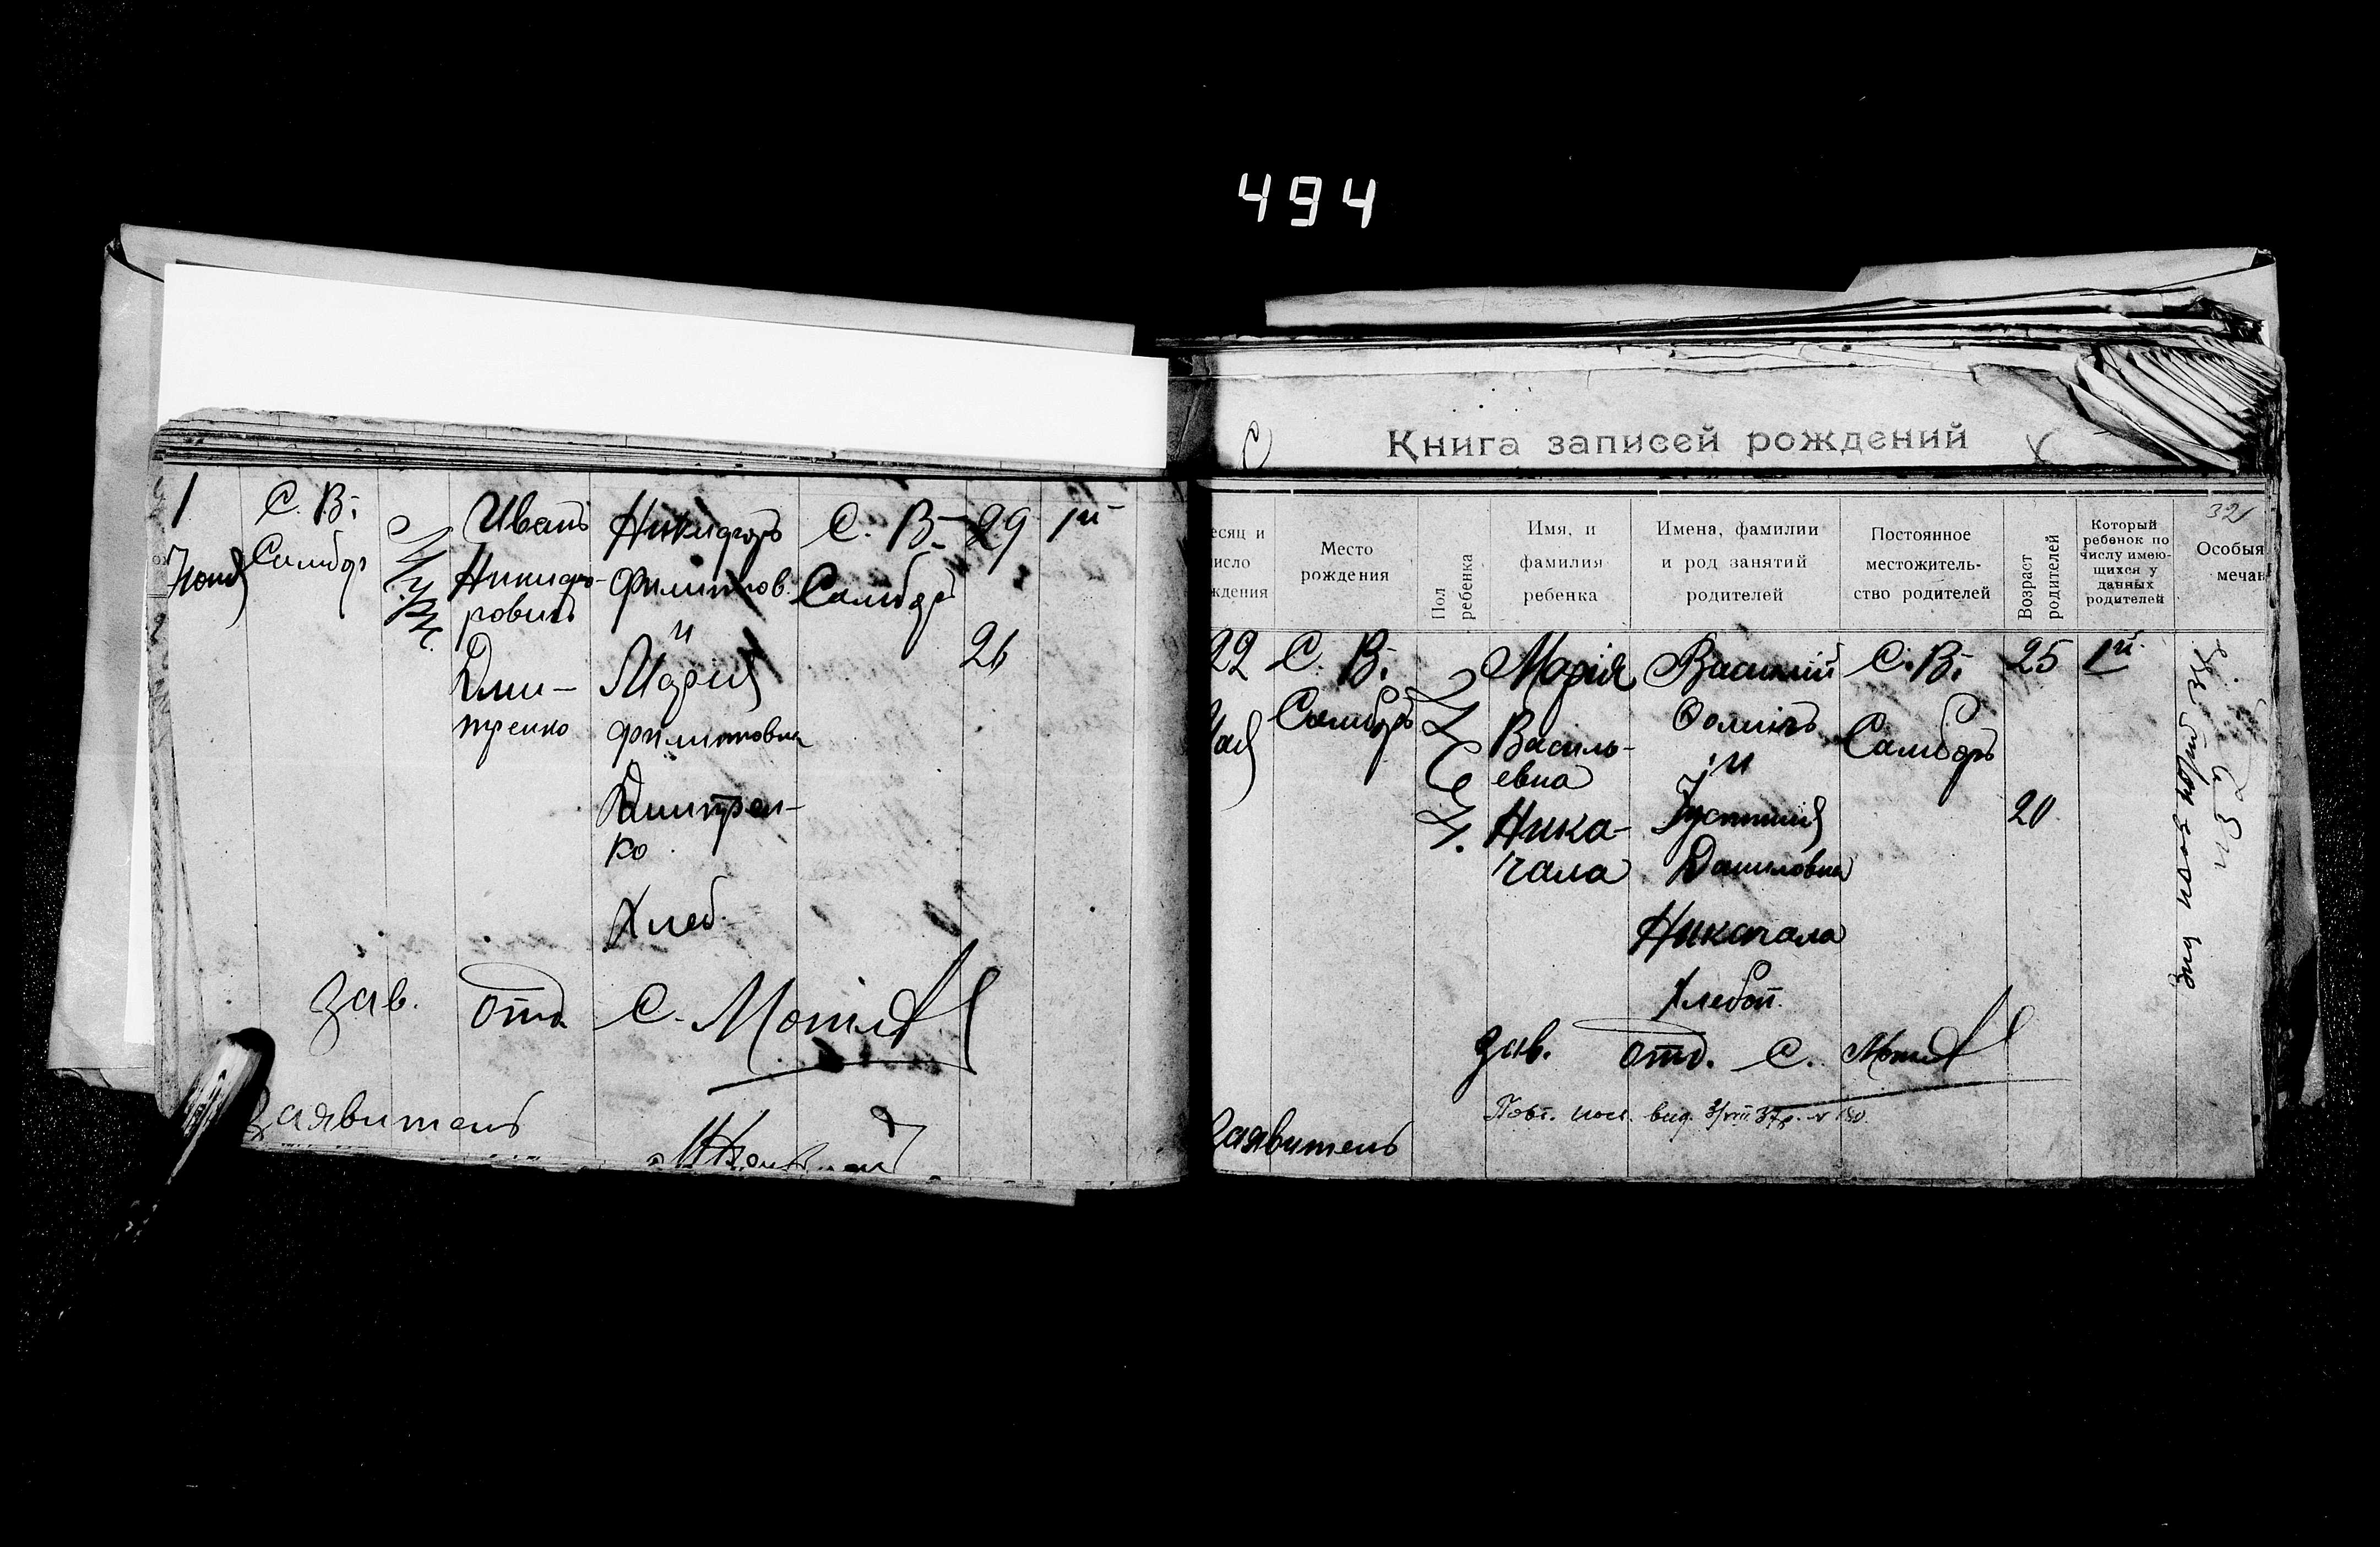 494
1
Июня
С. В:
Самбор
Муж.
Иванъ
Никифо-
ровичъ
Дми-
тренко
Никифоръ
Филиппов.
и
Мария
Филиповна
Дмитрен-
ко
Хлеб.
С. В:
Самбор
29
26
1й
зав. отд. С.
Заявитель
Книга записей рождений
32
есяц и
исло
ждения
Место
рождения
Пол
ребенка
Имя, и
фамилия
ребенка
Имена, фамилии
и род занятий
родителей
Постоянное
местожитель-
ство родителей
Возраст
родителей
Который
ребенок по
числу имею-
щихся у
данных
родителей
Особыя
мечан
22
Мая
С. В:
Самборъ
Марія
Василь-
евна
Ника-
чала
Василий
Фомичъ
и
Іустиния
Даниловна
Никачала
Хлебоп.
С. В:
Самборъ
25
20
1й.
зав. отд. С.
Повт. вид. 3/VIII 37р. № 180.
Заявитель